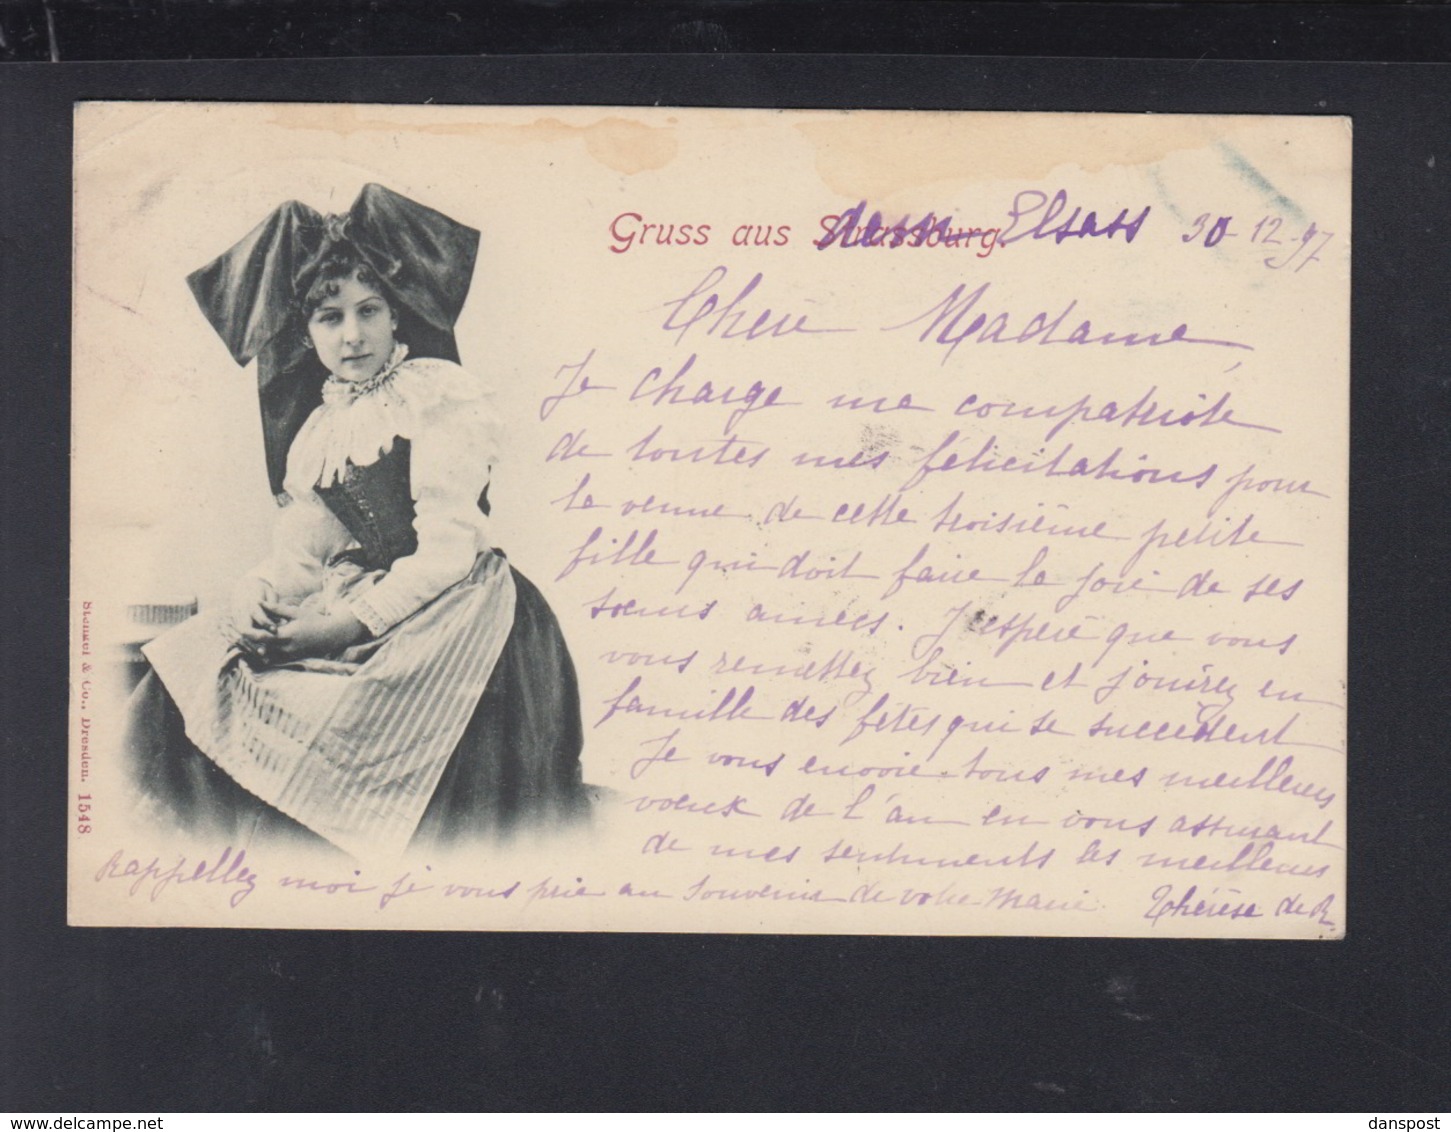 Gruss aus Strassburg.
dem Elsass 30-12-97
Chère Madame,
Je charge ma compatriote
de toutes mes félicitations pour
la venue de cette troisième petite
fille qui doit faire la joie de ses
sœurs ainées. J'espère que vous
vous remettez bien et jouirez en
famille des fêtes qui se succèdent
Je vous envoie tous mes meilleurs
vœux de l'an en vous assurant
de mes sentiments les meilleurs
Rappellez moi je vous prie au souvenir de votre mari. Thérèse de R.
Stengel & Co., Dresden. 1548
www.delcampe.net
danspost